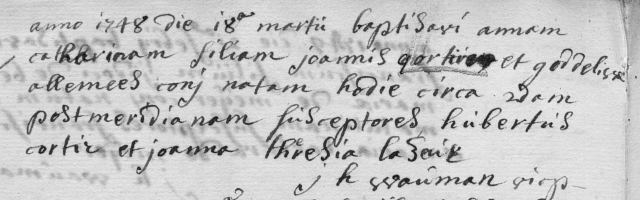 anno 1748 die 18a martii baptisavi annam
catharinam filiam joannis et goddelissæ
allemees conj natam hodie circa 2dam
postmeridianam susceptores hubertus
cortir et joanna theresia
j h wauman vicp